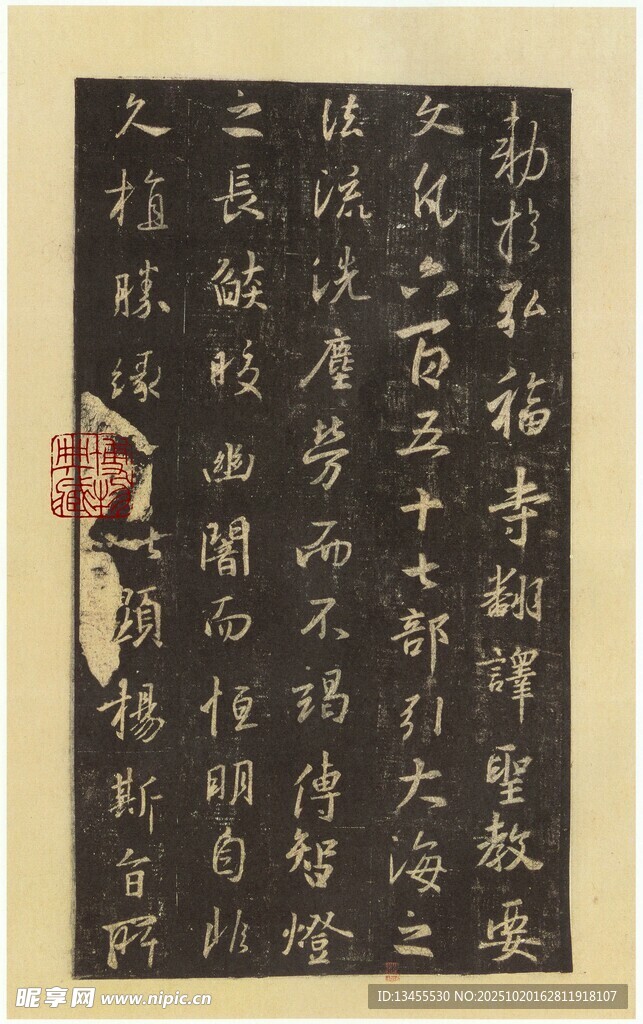 勅於弘福寺翻譯聖教要
文凡六百五十七部引大海之
法流洗塵勞而不竭傳智燈
之長燄皎幽闇而恒明自非
久植勝緣以顯揚斯旨所
昵享网 www.nipic.cn
ID:13455530 NO:20251020162811918107